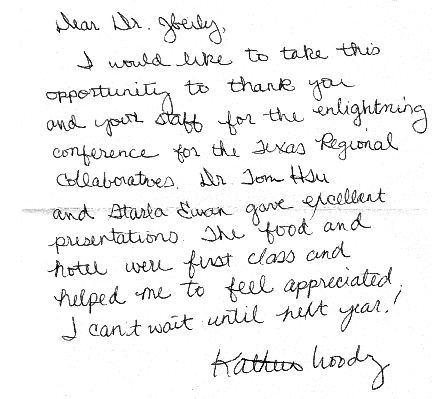 Dear Dr. Jbeily,
I would like to take this
opportunity to thank you
and your staff for the enlightning
conference for the Texas Regional
Collaboratives. Dr. Tom Hsu
and Starla Ewan gave excellent
presentations. The food and
hotel were first class and
helped me to feel appreciated.
I can't wait until next year!
Woody